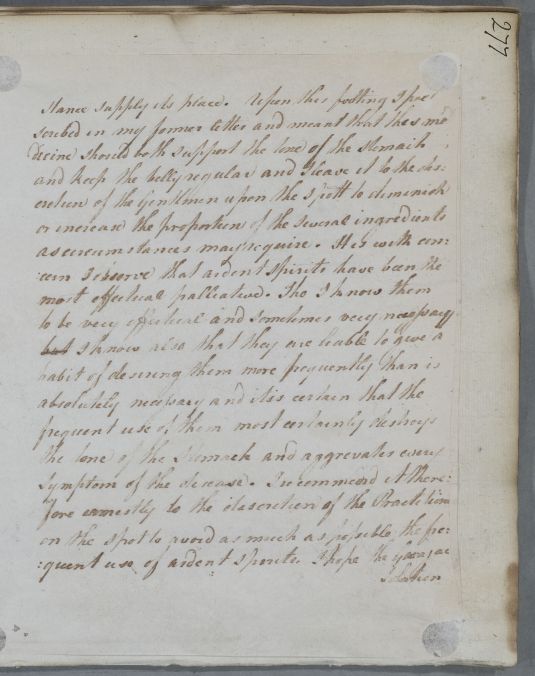 277
stance supply its place. Upon this footing I pre
scribed in my former letter and meant that this me
decine should both support the tone of the stomach
and keep the belly regular and I leave it to the dis:
cretion of the Gentlemen upon the spott to diminish
or increase the proportion of the several ingredients
as circumstances may require. It is with con:
:cern I observe that ardent spirits have been the
most effectual palliative. Tho I know them
to be very effectual and sometimes very necessary
but I know also that they are liable to give a
habit of desiring them more frequently than is
absolutely necessary and it is certain that the
frequent use of them most certainly destroys
the tone of the stomach and aggrevates every
symptom of the disease. I recommend it there:
fore earnestly to the discretion of the Practition
on the spot to avoid as much as possible the fre:
:quent use of ardent spirits. I hope the